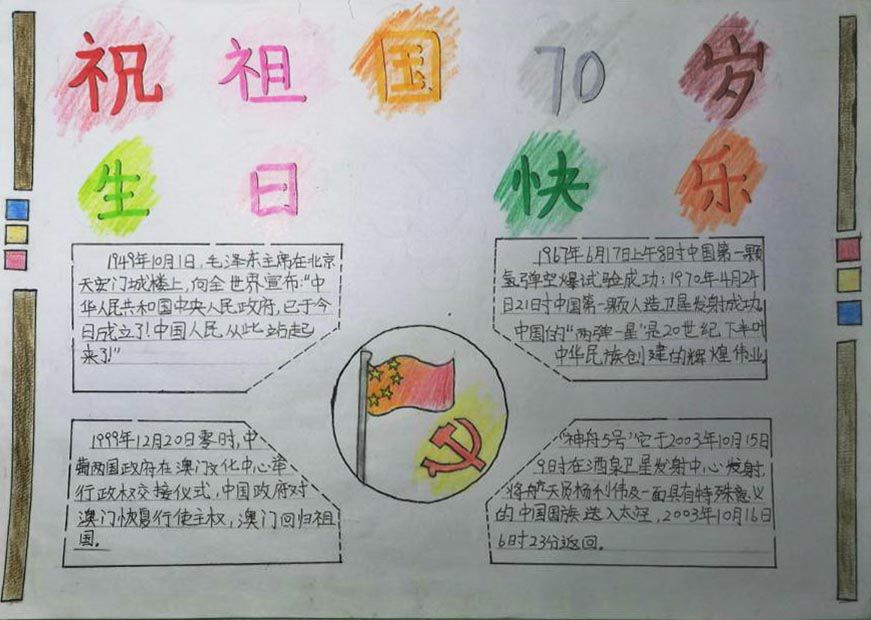 祝祖国70岁
生日快乐
1949年10月1日,毛泽东主席在北京
天安门城楼上,向全世界宣布:“中
华人民共和国中央人民政府,已于今
日成立了!中国人民从此站起
来了!”
1967年6月17日上午8时中国第一颗
氢弹空爆试验成功;1970年4月24
日21时中国第一颗人造卫星发射成功。
中国的“两弹一星”是20世纪下半叶
中华民族创建的辉煌伟业。
1999年12月20日零时,中
葡两国政府在澳门文化中心举
行政权交接仪式,中国政府对
澳门恢复行使主权,澳门回归祖
国。
“神舟5号”它于2003年10月15日
9时在酒泉卫星发射中心发射
将航天员杨利伟及一面具有特殊意义
的中国国旗送入太空,2003年10月16日
6时23分返回。